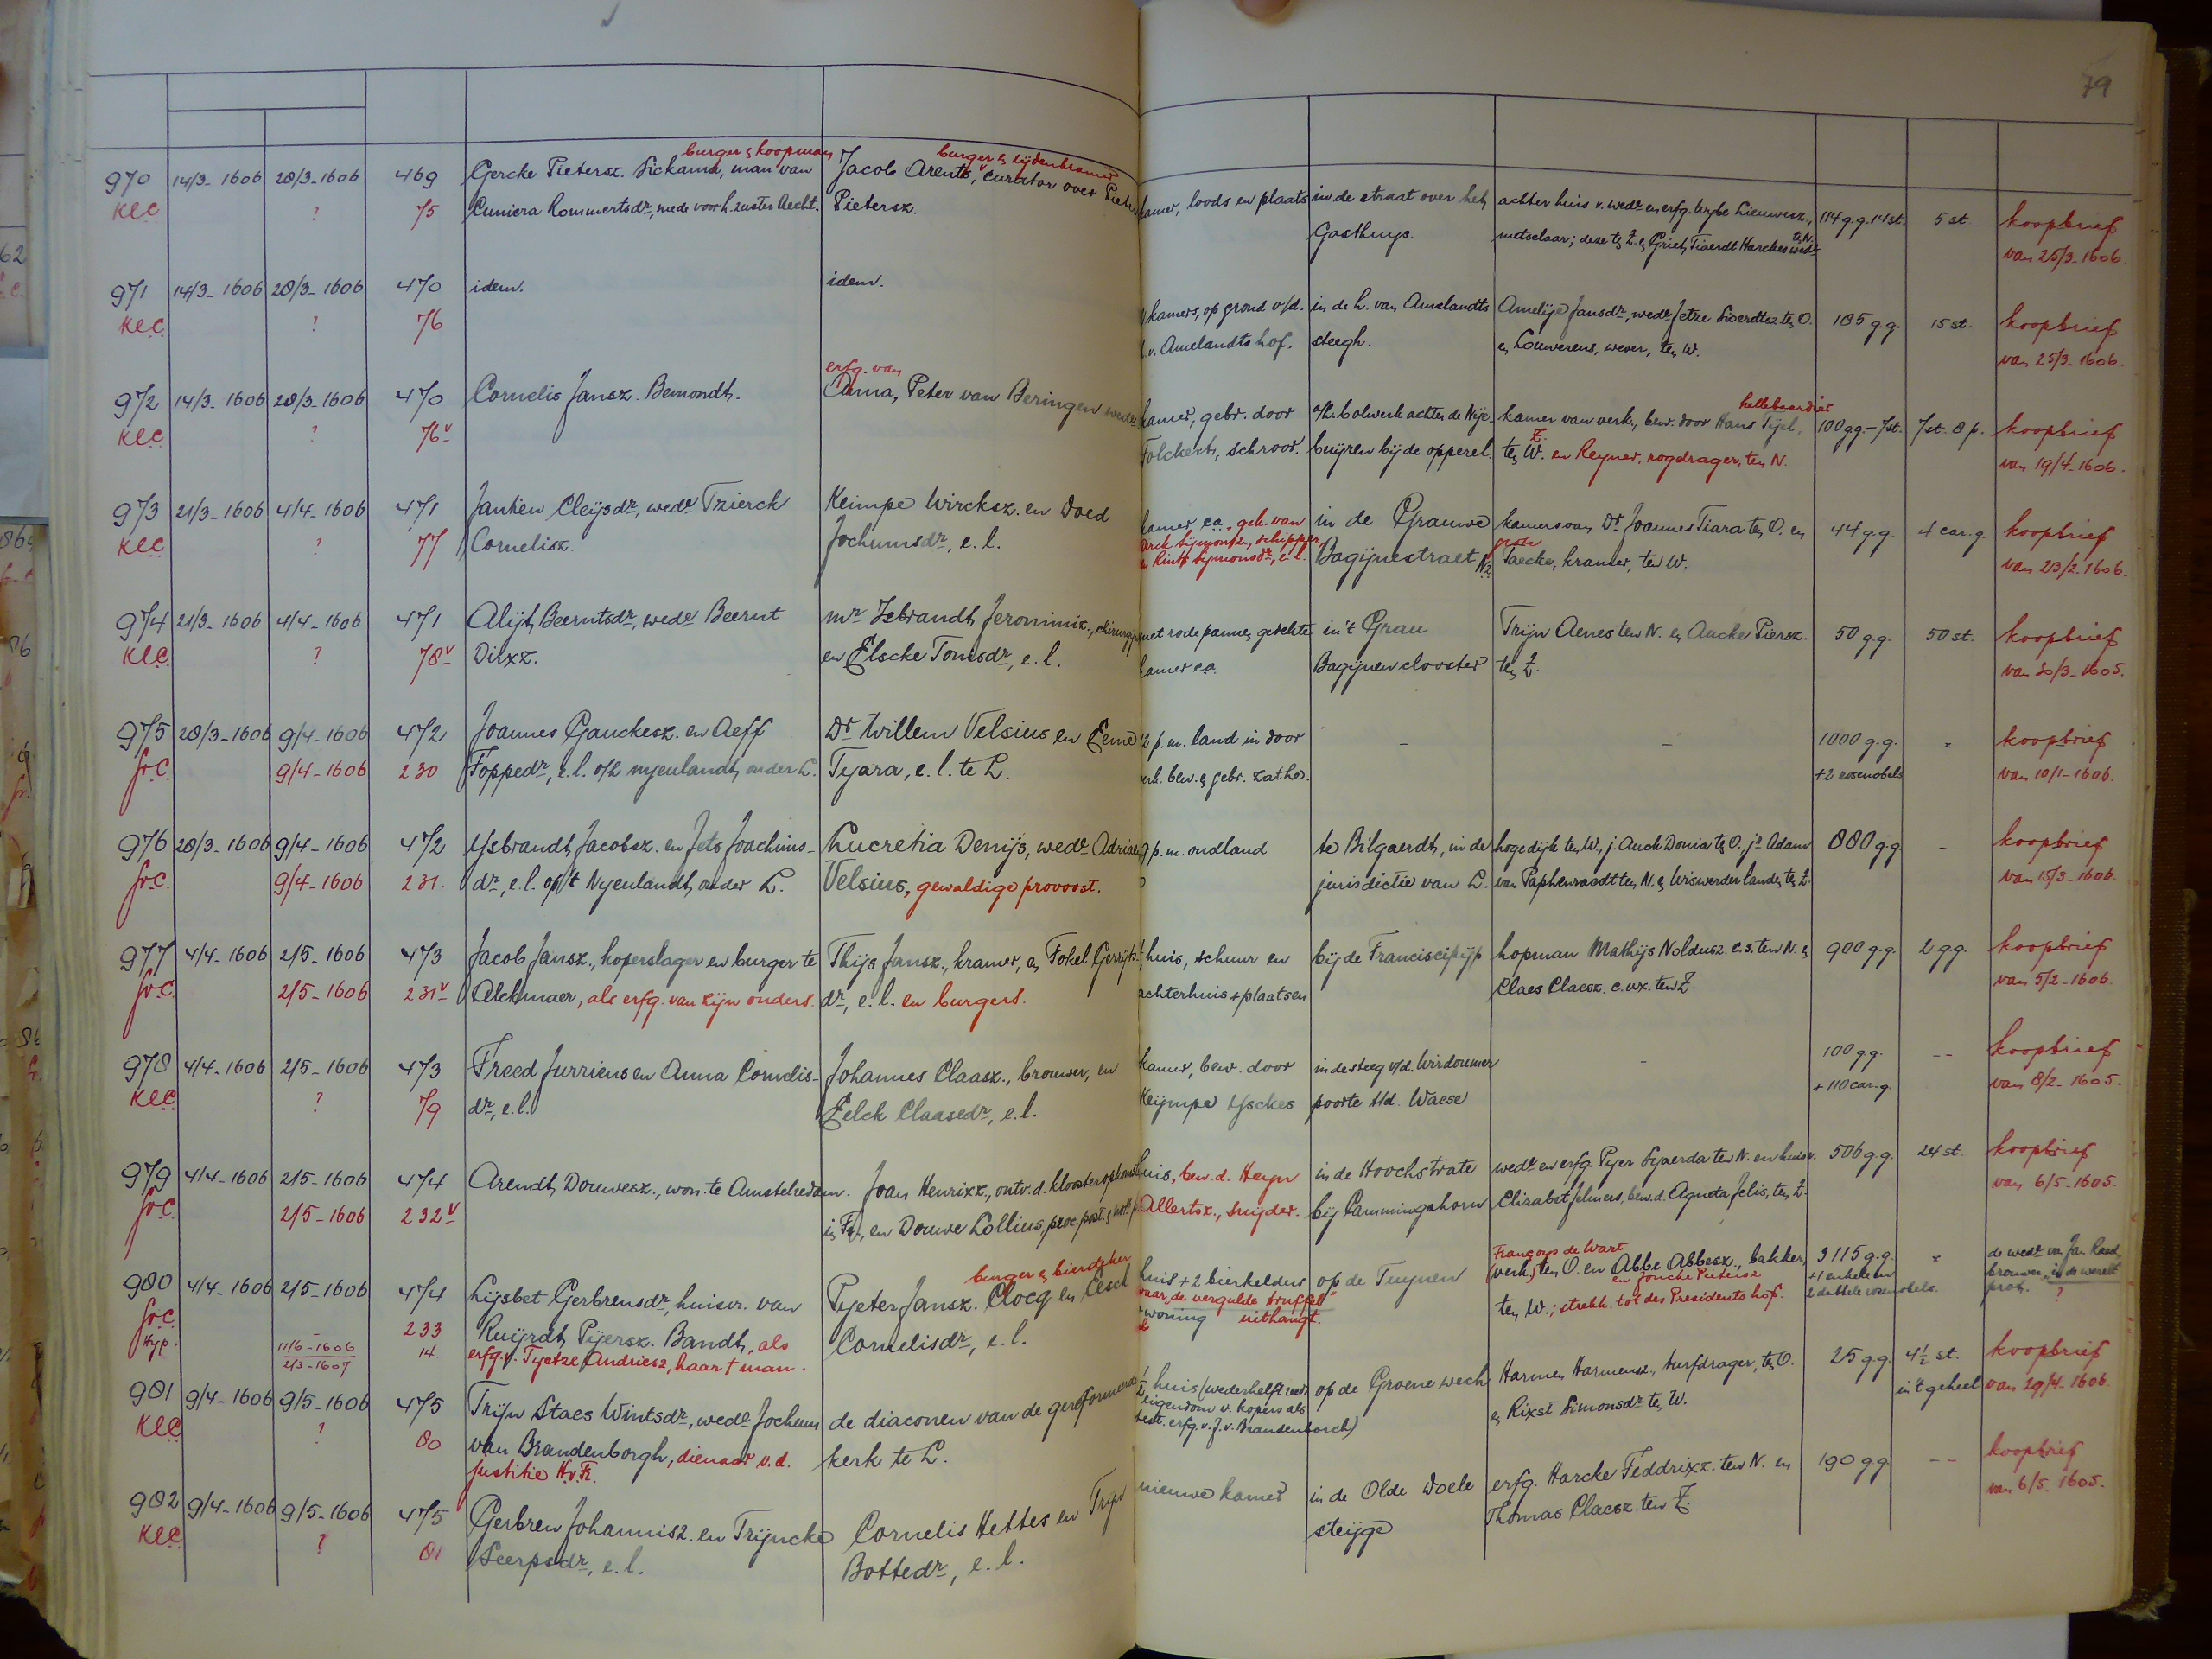 79
burger & koopman burger & zijdenkramer
970 14/3-1606 28/3-1606 469 Gercke Pietersz. Sickama, man van Jacob Arents, curator over Pieter kamer, loods en plaats in de straat over het achter huis v. wede en erfg. Wybe Lieuwesz., 114 g.g. 14 st. 5 st. koopbrief
KLC ? 75 Cuniera Rommertsdr, mede voor h. zuster Aecht. Pietersz. Gasthuys. metselaar; dese ten Z. en Griet Tiaerdt Harckes wede ten N. van 25/3-1606.
971 14/3-1606 28/3-1606 470 idem. idem. kamers, op grond v/d. in de h. van Amelandts Amelije Jansdr, wede Jetze Sioerdtsz ten O. 185 g.g. 15 st. koopbrief
KLC ? 76 h. v. Amelandts hof. steegh. en Louwerens, wever, ten W. van 25/3-1606.
erfg. van hellebaardier
972 14/3-1606 28/3-1606 470 Cornelis Jansz. Bemondt. Anna, Peter van Beringen wede kamer, gebr. door a/h. bolwerk achter de Nije- kamer van verk., bew. door Hans Tijel, 100 gg.-7 st. 7 st. 8 p. koopbrief
KLC ? 76v Folckert, schroor. buijren bij de opperel. ten W. Z. en Reyner, rogdrager, ten N. van 19/4-1606.
973 21/3-1606 4/4-1606 471 Jantien Cleijsdr, wede Tzierck Keimpe Wircksz. en Doed kamer ca. gek. van in de Grauwe kamers van Dr Joannes Tiara ten O. en 44 g.g. 4 car. g. koopbrief
KLC ? 77 Cornelisz. Jochumsdr, e.l. Dirck Sijmonsz, schipper, en Rints Sijmonsdr, e.l. Bagijnestraet NZ. Taecke, kramer, ten W. van 23/2.1606.
974 21/3-1606 4/4-1606 471 Alijt Beerntsdr, wede Beernt mr Isbrandt Jeronimiz., chirurgijn met rode pannen gedekte in 't Grau Trijn Aenes ten N. en Aucke Piersz. 50 g.g. 50 st. koopbrief
KLC ? 78v Dirxz. en Elscke Tonisdr, e.l. kamer ca. Bagijnenclooster ten Z. van 20/3-1605.
975 28/3-1606 9/4-1606 472 Joannes Gauckesz. en Aeff Dr Willem Velsius en Eeme 12 p.m. land in door – – 1000 g.g. " koopbrief
Gr.C. 9/4-1606 230 Foppedr, e.l. o/h nyenlandt onder L. Tyara, e.l. te L. verk. bew. & gebr. zathe. +2 rosenobels van 10/1-1606.
976 28/3-1606 9/4-1606 472 Ysbrandt Jacobsz. en Jets Joachims- Lucretia Denijs, wede Adriaen 9 p.m. oudland te Bilgaerdt, in de hogedijk ten W., j. Auck Donia ten O., jr Adam 880 g.g – koopbrief
Gr.C. 9/4-1606 231. dr, e.l. op 't Nyenlandt onder L. Velsius, gewaldige provoost. jurisdictie van L. van Paphenraedt ten N. & Wiswerder landen ten Z. van 15/3-1606.
977 4/4-1606 2/5-1606 473 Jacob Jansz., koperslager en burger te Thijs Jansz., kramer, en Fokel Gerrijts- huis, schuur en bij de Franciscipijp hopman Mathijs Noldusz. c.s. ten N. & 900 g.g. 2 g.g. koopbrief
Gr.C. 2/5-1606 231v Alckmaer, als erfg. van zijn ouders. dr, e.l. en burgers. achterhuis + plaatsen Claes Claesz. c.ux. ten Z. van 5/2-1606.
978 4/4-1606 2/5-1606 473 Freed Jurriens en Anna Cornelis- Johannes Claasz., brouwer, en kamer, bew. door in de steeg v/d. Wirdoumer – 100 gg. -- koopbrief
KLC ? 79 dr, e.l. Eelck Claasedr, e.l. Keijmpe Ysckes poorte t/d. Waese +110 car.g. van 8/2-1605.
979 4/4-1606 2/5-1606 474 Arendt Douwesz., won. te Amstelredam. Joan Henrixz., ontv. d. kloosteropkomst huis, bew. d. Heyn in de Hoochstrate wede en erfg. Pyer Syaerda ten N. en huis v. 506 g.g. 24 st. koopbrief
Gr.C. 2/5-1606 232v in Fr., en Douwe Lollius, proc. post. & not. p. Allertsz., snijder. bij Cammingahorn Elizabet Jelmers, bew. d. Agneta Jelis, ten Z. van 6/5-1605.
burger & biersteker Françoys de Wart
980 4/4-1606 2/5-1606 474 Lijsbet Gerbrensdr, huisvr. van Pyeter Jansz. Clocq en Aesch huis + 2 bierkelders op de Tuynen (verk.) ten O. en Abbe Abbesz., bakker, 3115 g.g. " de wede van Jan Raed,
Gr.C. 233 Ruijrdt Pijersz. Bandt, als Cornelisdr, e.l. waar "de vergulde truffel" + woning uithangt. en Jouche Pietersz ten W.; strekk. tot des Presidents hof. +1 enkele en 2 dubbele rosenobels. brouwer "in de werelt" prot. ?
Hyp. 11/6-1606 2/3-1607 14. erfg. v. Tyetze Andriesz, haar † man.
981 9/4-1606 9/5-1606 475 Trijn Staes Wintsdr, wede Jochum de diaconen van de gereformeerde ½ huis (wederhelft reeds op de Groene wech Harmen Harmensz., turfdrager, ten O. 25 g.g. 4½ st. koopbrief
KLC ? 80 van Brandenborgh, dienaar v.d. kerk te L. eigendom v. kopers als test. erfg. v. J. v. Brandenborch) & Rixst Simonsdr ten W. in 't geheel van 29/4-1606.
justitie H.v.Fr.
982 9/4-1606 9/5-1606 475 Gerbren Johannisz. en Trijncke Cornelis Hettes en Trijn nieuwe kamer in de Olde Doele erfg. Harcke Feddrixz. ten N. en 190 gg -- koopbrief
KLC ? 81 Seerpsdr, e.l. Bottedr, e.l. steijge Thomas Claesz. ten Z. van 6/5-1605.